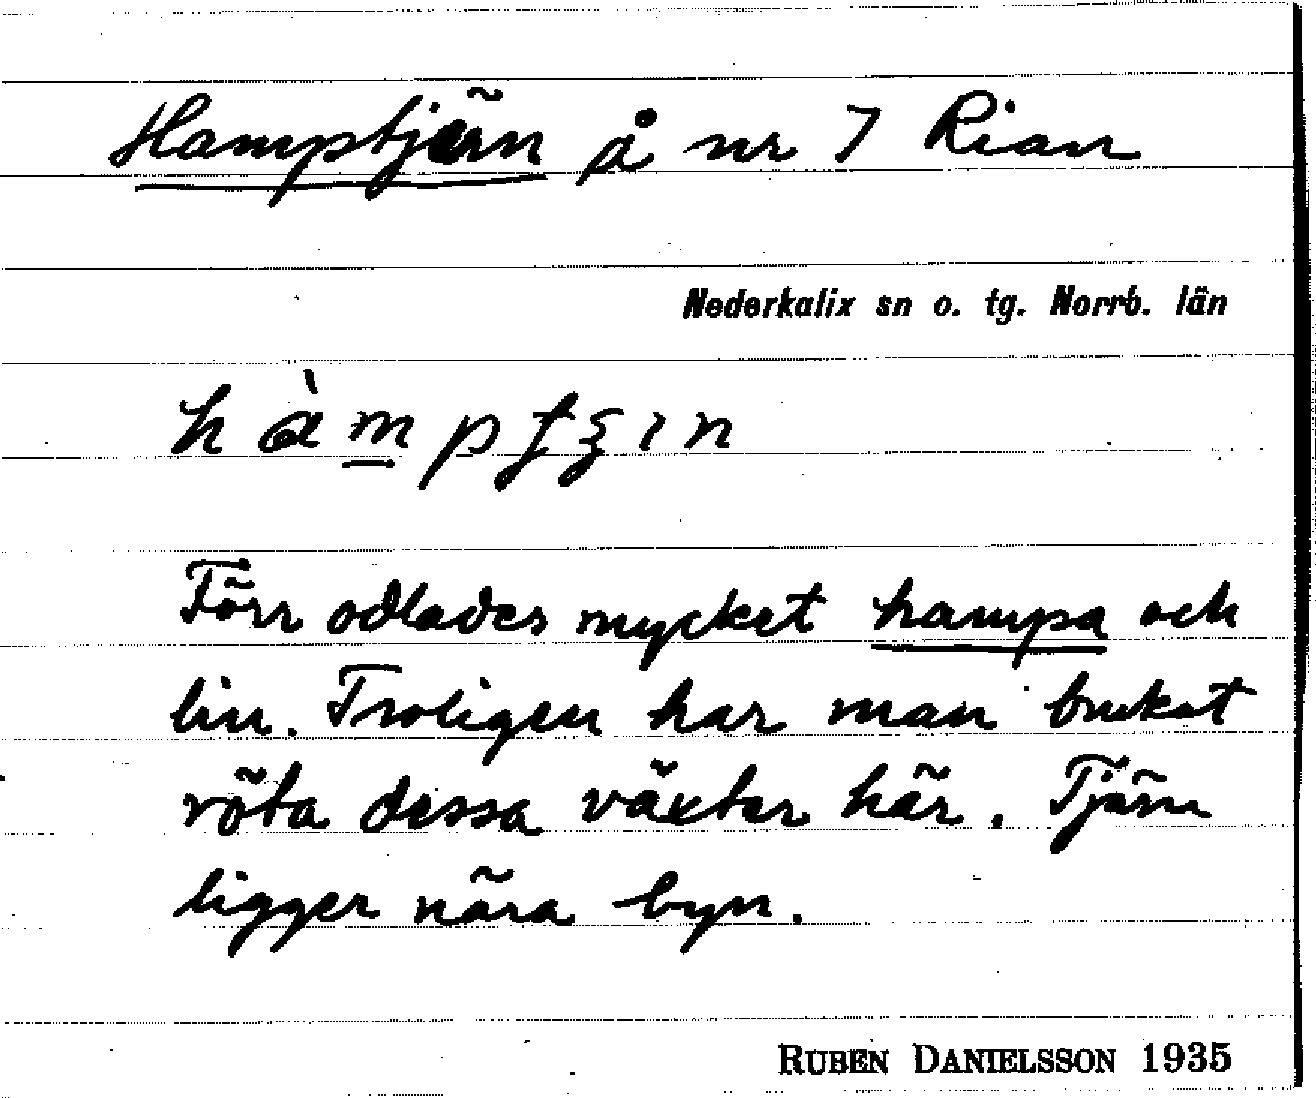 Hamptjärn på nr 7 Rian
Nederkalix sn o. tg. Norrb. län
hàm̲pʈʒın
Förr odlades mycket hampa och
lin. Troligen har man brukat
röta dessa växter här. Tjärn
ligger nära byn.
RUBEN DANIELSSON 1935